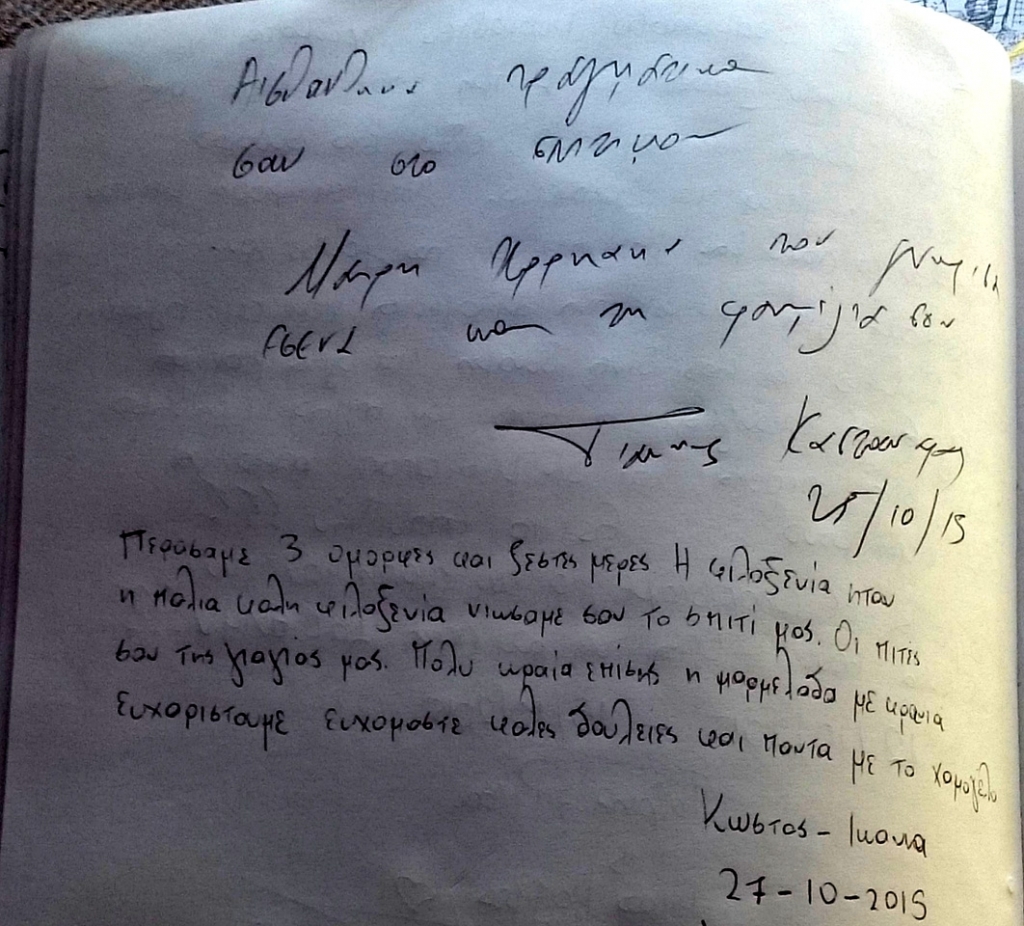 Αισθανθηκα πραγματικα
σαν στο σπιτι μου
που
εσενα και τη φαμίλια σου
Γιαννης
25/10/15
Περάσαμε 3 ομορφες και ζεστες μερες. Η φιλοξενία ηταν
η παλια καλη φιλοξενία νιωσαμε σαν το σπιτί μας. Οι πιτες
σαν της γιαγιάς μας. Πολυ ωραία επίσης η μαρμελάδα με κρανια
Ευχαριστουμε ευχομαστε καλες δουλειες και παντα με το χαμογελο
Κωστας -
27-10-2015